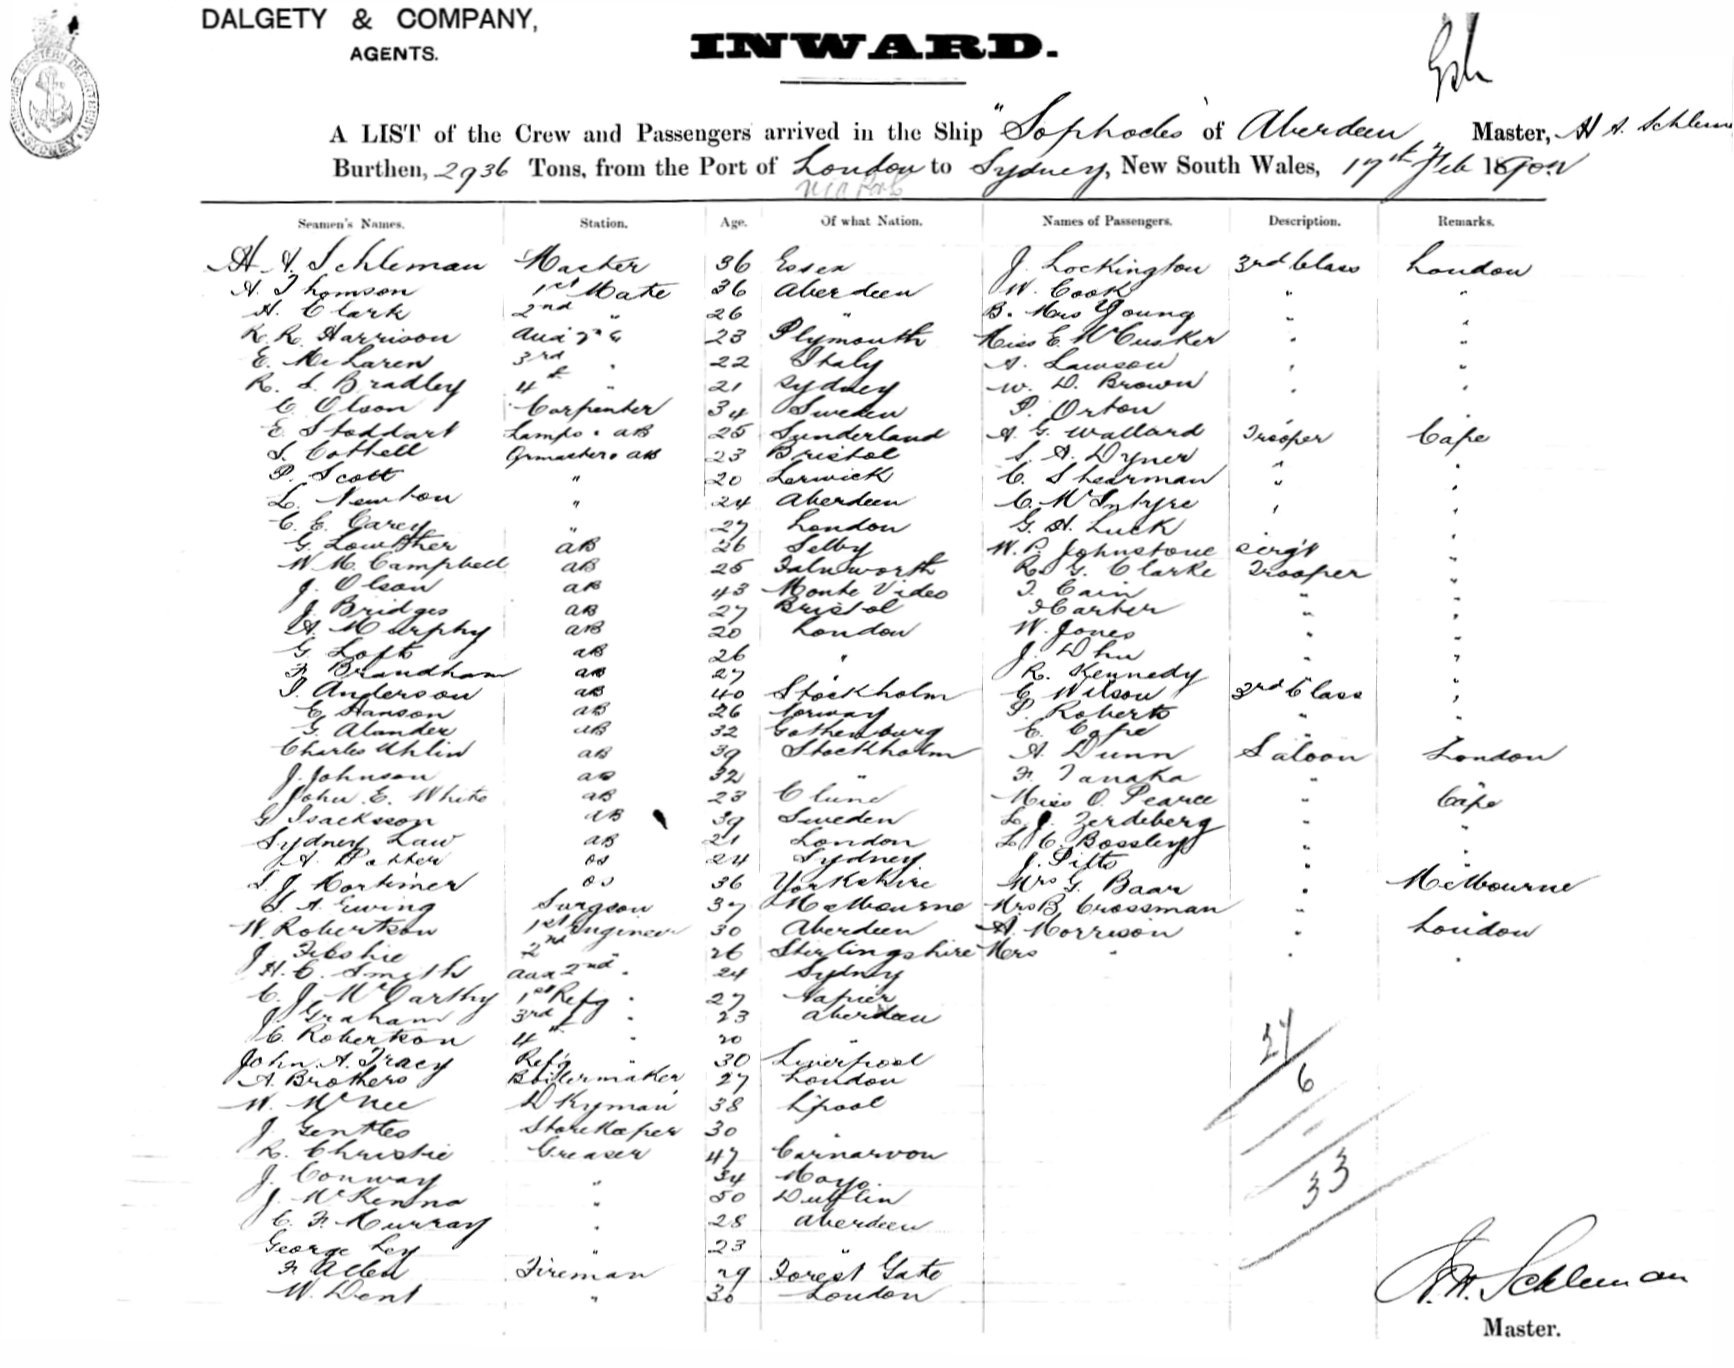 DALGETY & COMPANY,
AGENTS.
INWARD.
A LIST of the Crew and Passengers arrived in the Ship "Sophocles" of Aberdeen, Master, A A. Schlem
Burthen, 2936 Tons, from the Port of London to Sydney, New South Wales, 17th Feb 1890
Seamen's Names. Station. Age. Of what Nation. Names of Passengers. Description. Remarks.
A. A. Schleman Master 36 Essex J. Lockington 3rd Class London
A. Thomson 1st Mate 36 Aberdeen W. Cook " "
H. Clark 2nd " 26 " B. Mrs Young " "
R. R. Harrison Aux 2nd " 23 Plymouth Miss E. McCusker " "
E. McLaren 3rd " 22 Italy A. Lawson " "
R. S. Bradley 4th " 21 Sydney W. D. Brown " "
C. Olson Carpenter 34 Sweden P. Orton
E. Stoddart Lamps. AB 25 Sunderland A. G. Wallard Trooper Cape
S. Cottell Qrmaster AB 23 Bristol S. A. Dyner " "
P. Scott " 20 Lerwick C. Shearman " "
L. Newton " 24 Aberdeen C. McIntyre " "
C. E. Carey " 27 London G. H. Luck "
G. Lowther AB 26 Selby W. P. Johnstone Sergt "
W. M. Campbell AB 25 R. G. Clarke Trooper "
J. Olson AB 43 Monte Video T. Cain " "
J. Bridges AB 27 Bristol Carter " "
A. Murphy AB 20 London W. Jones " "
G. Lofts AB 26 " J. " "
F. Brandham AB 27 " R. Kennedy " "
I. Anderson AB 40 Stockholm E. Wilson 3rd Class "
E. Hanson AB 26 Norway P. Roberts " "
G. Alander AB 32 Gothenburg E. Cope "
Charles Uhlin AB 39 Stockholm A. Dunn Saloon London
J. Johnson AB 32 " F. Tanaka " "
John E. White AB 23 Miss O. Pearce " Cape
G. Isacksson AB 39 Sweden L. J. Zerdeberg " "
Sydney Law AB 21 London L. C. Bossley " "
A. Potter OS 24 Sydney J. Pitts " "
S. J. Mortimer OS 36 Yorkshire Mrs G. Baar " Melbourne
S. A. Ewing Surgeon 37 Melbourne Mrs B. Crossman "
W. Robertson 1st Engineer 30 Aberdeen A. Morrison " London
J. Feoshie 2nd " 26 Stirlingshire Mrs " " "
H. C. Smyth Aux 2nd " 24 Sydney
C. J. McCarthy 1st Refg " 27 Napier
J. Graham 3rd " 23 Aberdeen
C. Robertson 4th " 20 "
John A. Tracy Refg " 30 Liverpool
A. Brothers Boilermaker 27 London
W. McNee Dkyman 38 L'pool
J. Gentles Storekeeper 30 "
R. Christie Greaser 47 Carnarvon
J. Conway " 34 Mayo.
J. McKenna " 50 Dublin
C. F. Murray " 28 Aberdeen
George Ley " 23 "
F. Allen Fireman 29 Forest Gate
W. Dent " 30 London
27
6
33
A. A. Schleman
Master.